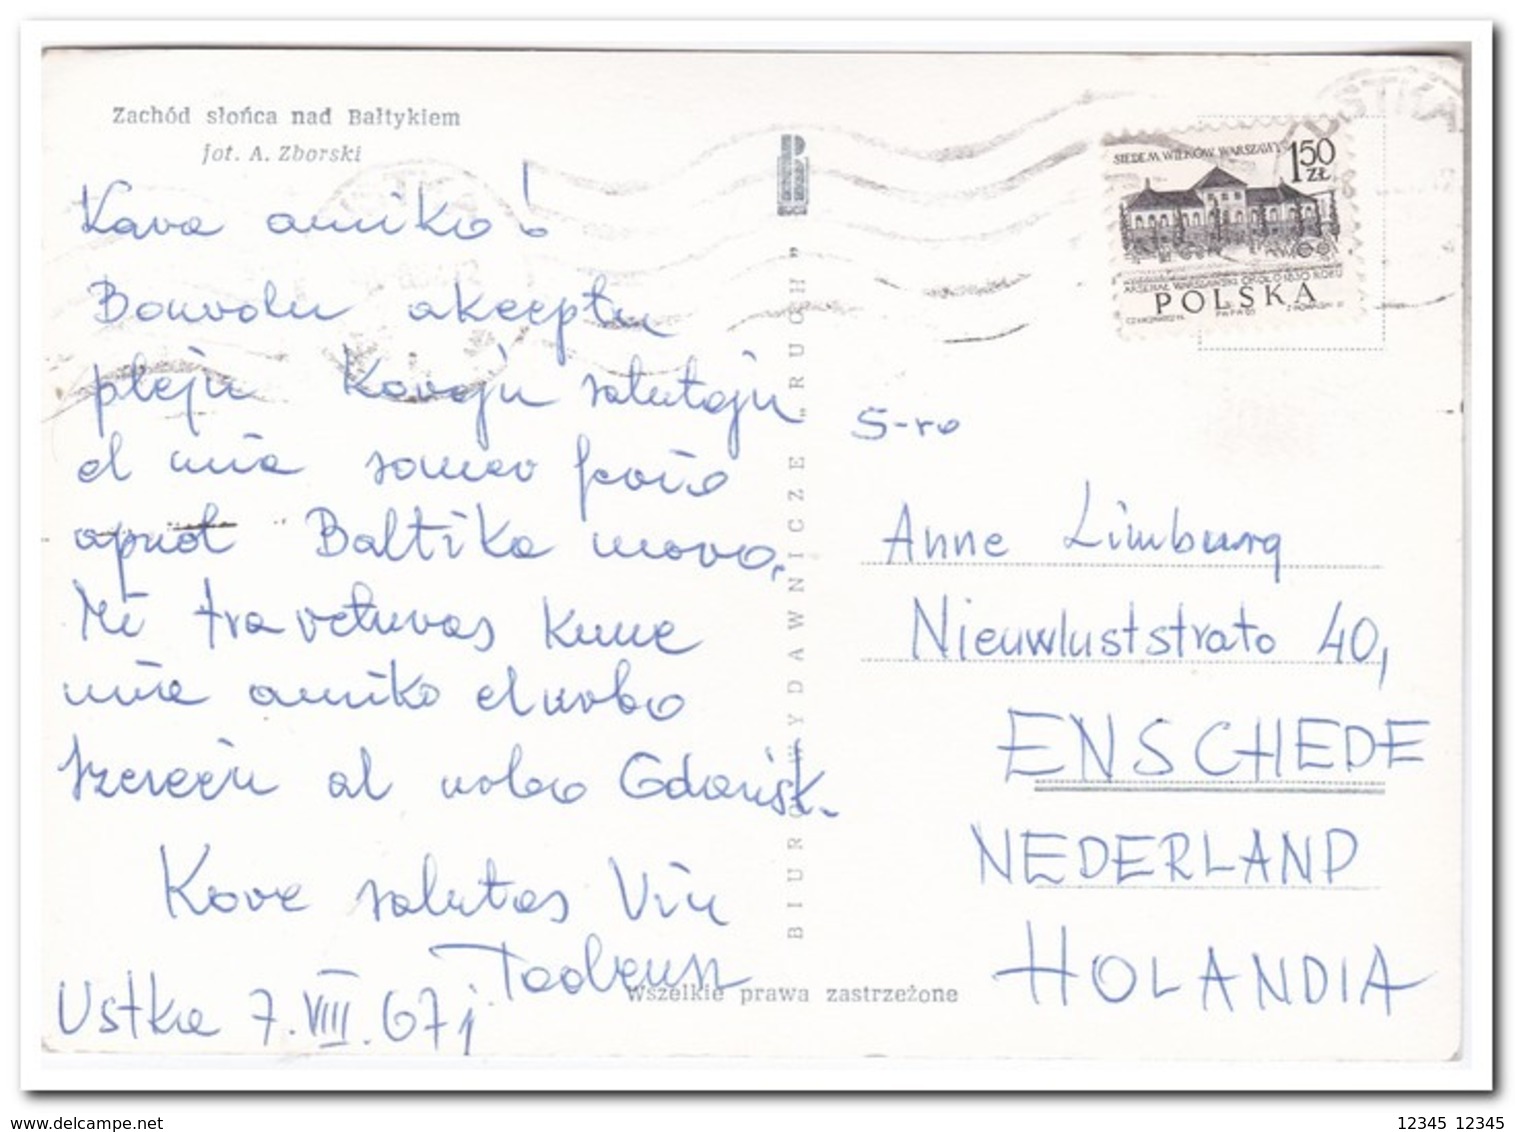 Zachód słońca nad Bałtykiem
fot. A. Zborski
Kara amiko!
Bonvolu akceptu
plejn korajn salutojn
el mia somer feria
apud Baltika maro.
Mi traveturas kune
mia amiko el urbo
Szczecin al urbo Gdańsk.
Kore salutas Vin
Tadeusz
Ustka 7.VIII.67j
BIURO WYDAWNICZE "RUCH"
Wszelkie prawa zastrzeżone
SIEDEM WIEKÓW WARSZAWY
1,50 ZŁ
ARSENAŁ WARSZAWSKI OKOŁO 1830 ROKU
POLSKA
USTKA
S-ro
Anne Limburg
Nieuwluststrato 40,
ENSCHEDE
NEDERLAND
HOLANDIA
www.delcampe.net
12345 12345